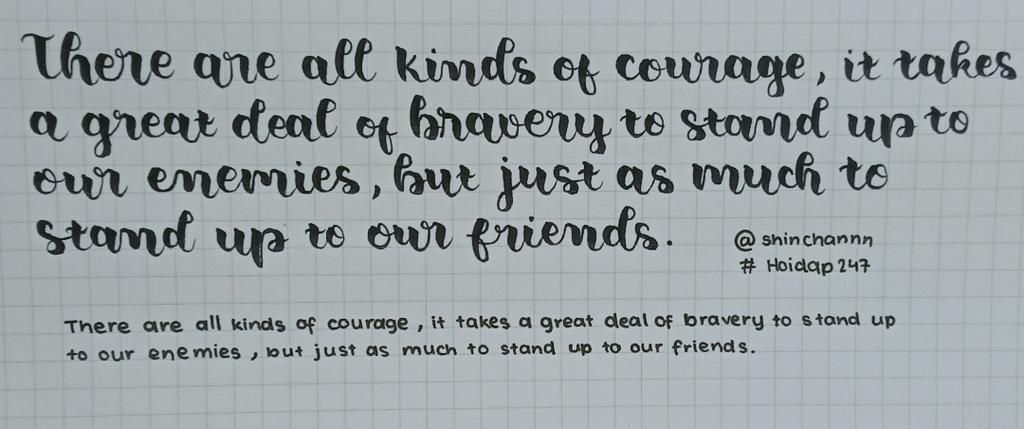 There are all kinds of courage, it takes
a great deal of bravery to stand up to
our enemies, but just as much to
stand up to our friends.
@ shinchannn
# Hoidap 247
There are all kinds of courage, it takes a great deal of bravery to stand up
to our enemies, but just as much to stand up to our friends.